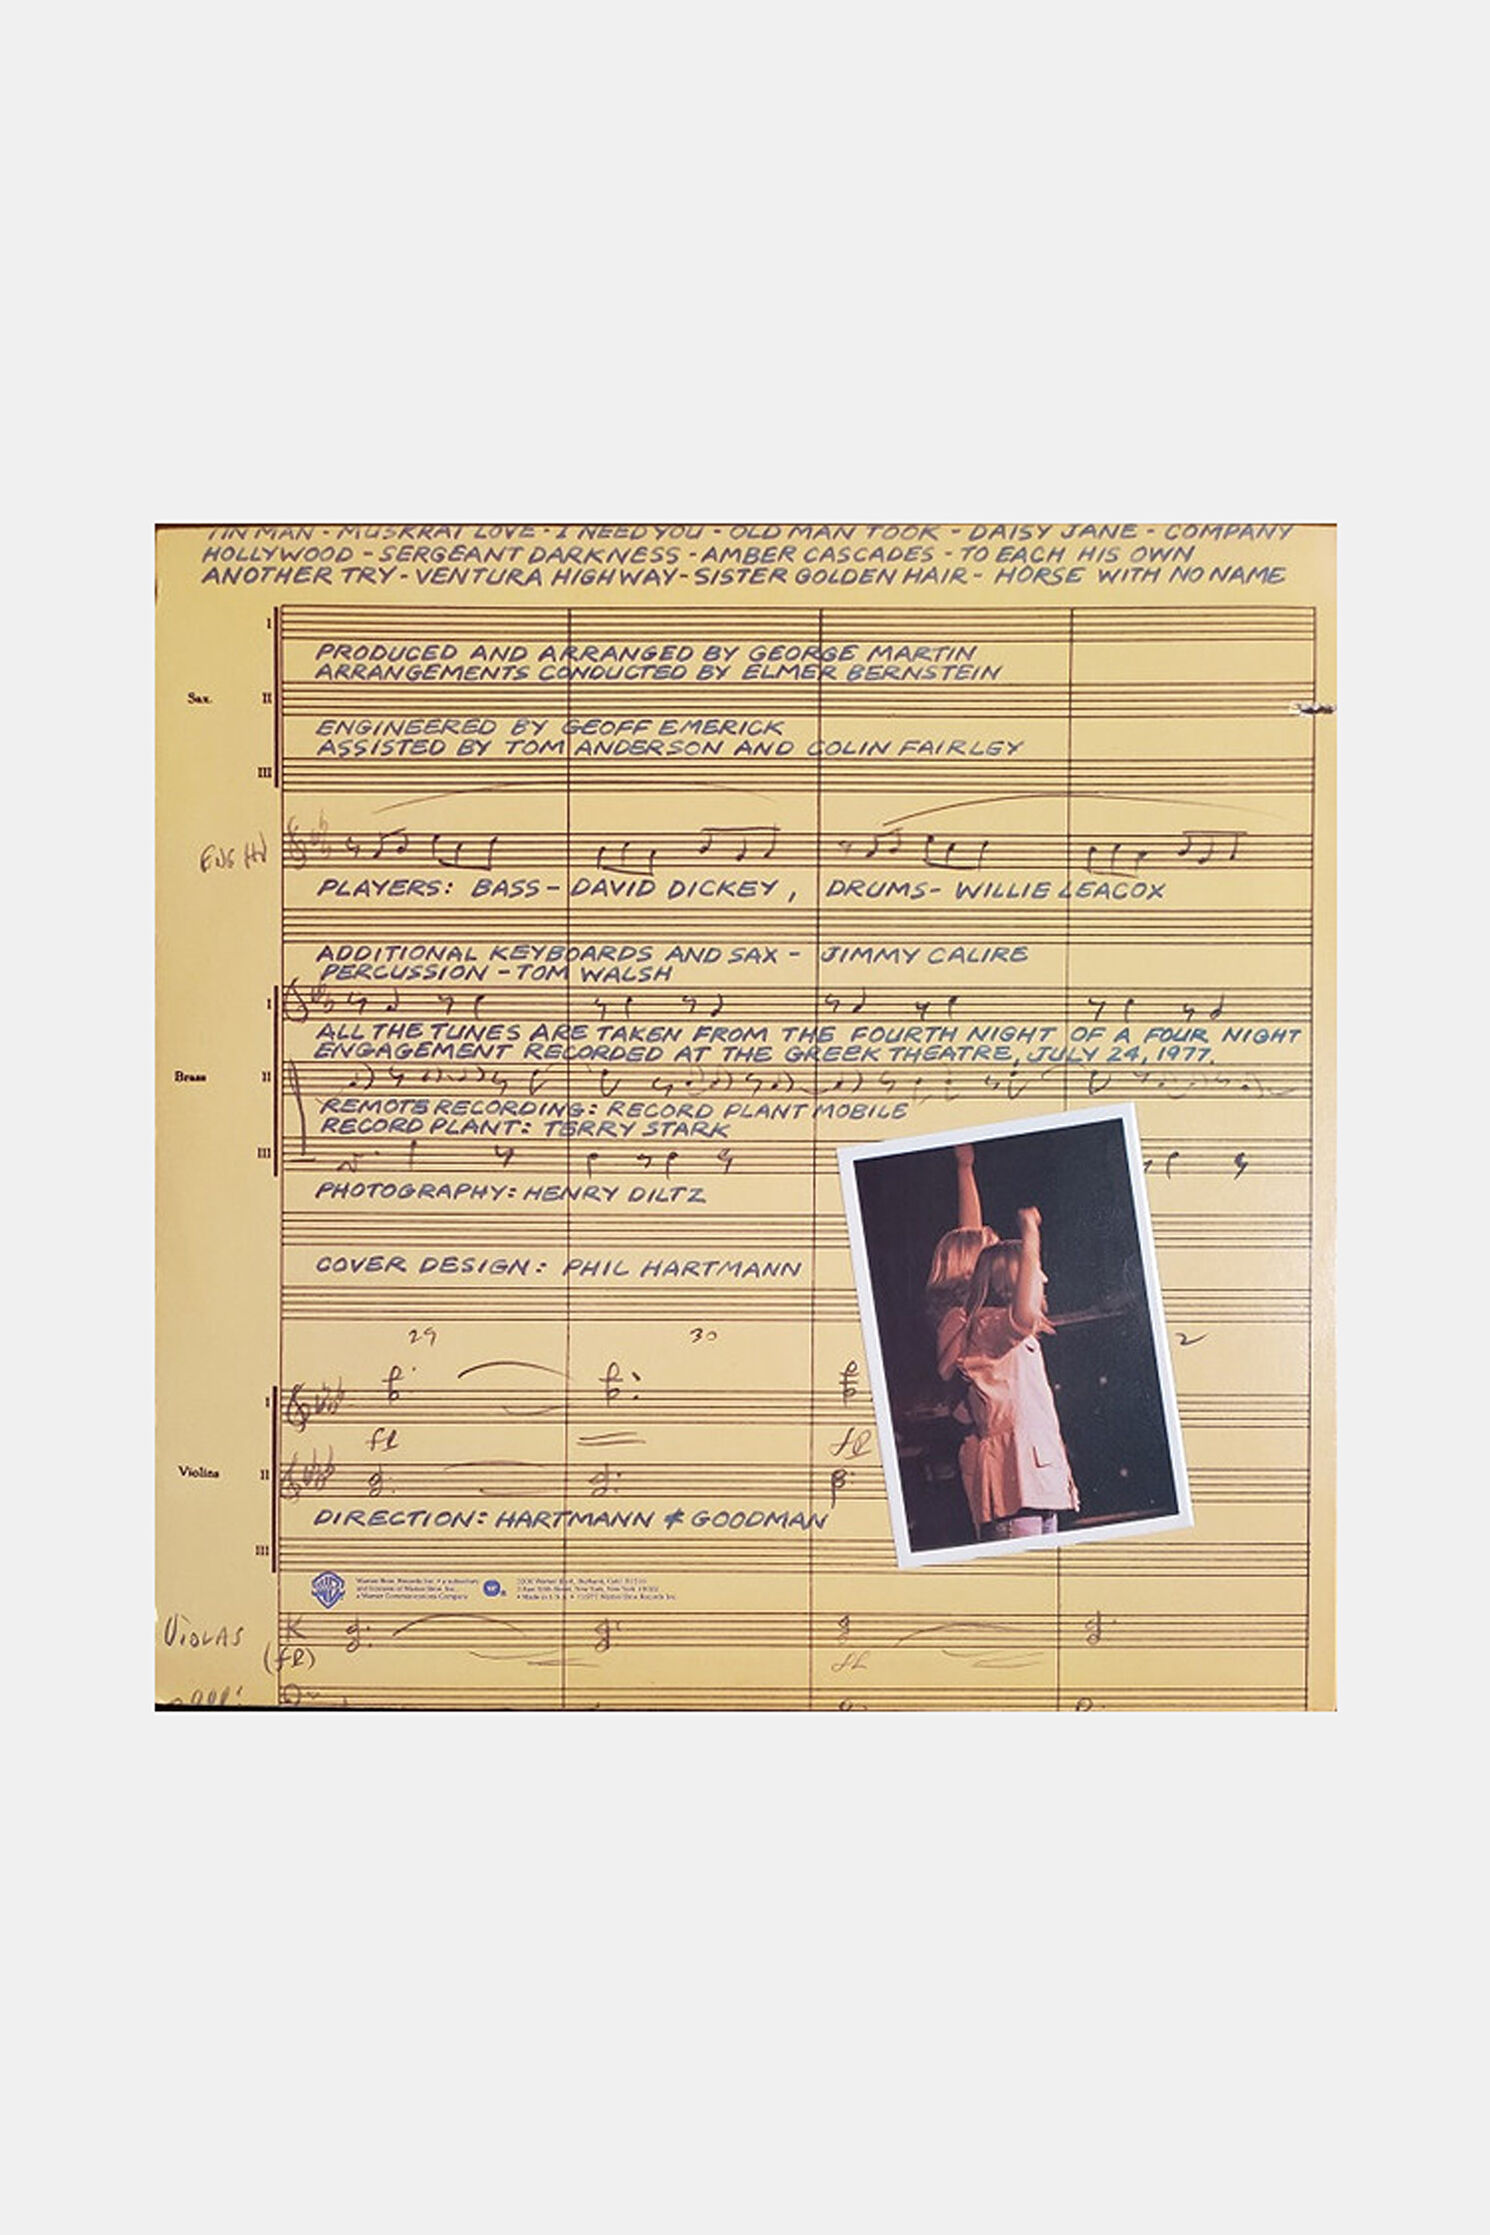 TIN MAN - MUSKRAT LOVE - I NEED YOU - OLD MAN TOOK - DAISY JANE - COMPANY
HOLLYWOOD - SERGEANT DARKNESS - AMBER CASCADES - TO EACH HIS OWN
ANOTHER TRY - VENTURA HIGHWAY - SISTER GOLDEN HAIR - HORSE WITH NO NAME
I
PRODUCED AND ARRANGED BY GEORGE MARTIN
ARRANGEMENTS CONDUCTED BY ELMER BERNSTEIN
Sax. II
ENGINEERED BY GEOFF EMERICK
ASSISTED BY TOM ANDERSON AND COLIN FAIRLEY
III
ENG HN
PLAYERS: BASS - DAVID DICKEY, DRUMS - WILLIE LEACOX
ADDITIONAL KEYBOARDS AND SAX - JIMMY CALIRE
PERCUSSION - TOM WALSH
I
ALL THE TUNES ARE TAKEN FROM THE FOURTH NIGHT OF A FOUR NIGHT
ENGAGEMENT RECORDED AT THE GREEK THEATRE, JULY 24, 1977.
Brass II
REMOTE RECORDING: RECORD PLANT MOBILE
RECORD PLANT: TERRY STARK
III
PHOTOGRAPHY: HENRY DILTZ
COVER DESIGN: PHIL HARTMANN
29 30 2
I
Violins II
DIRECTION: HARTMANN & GOODMAN
III
VIOLAS